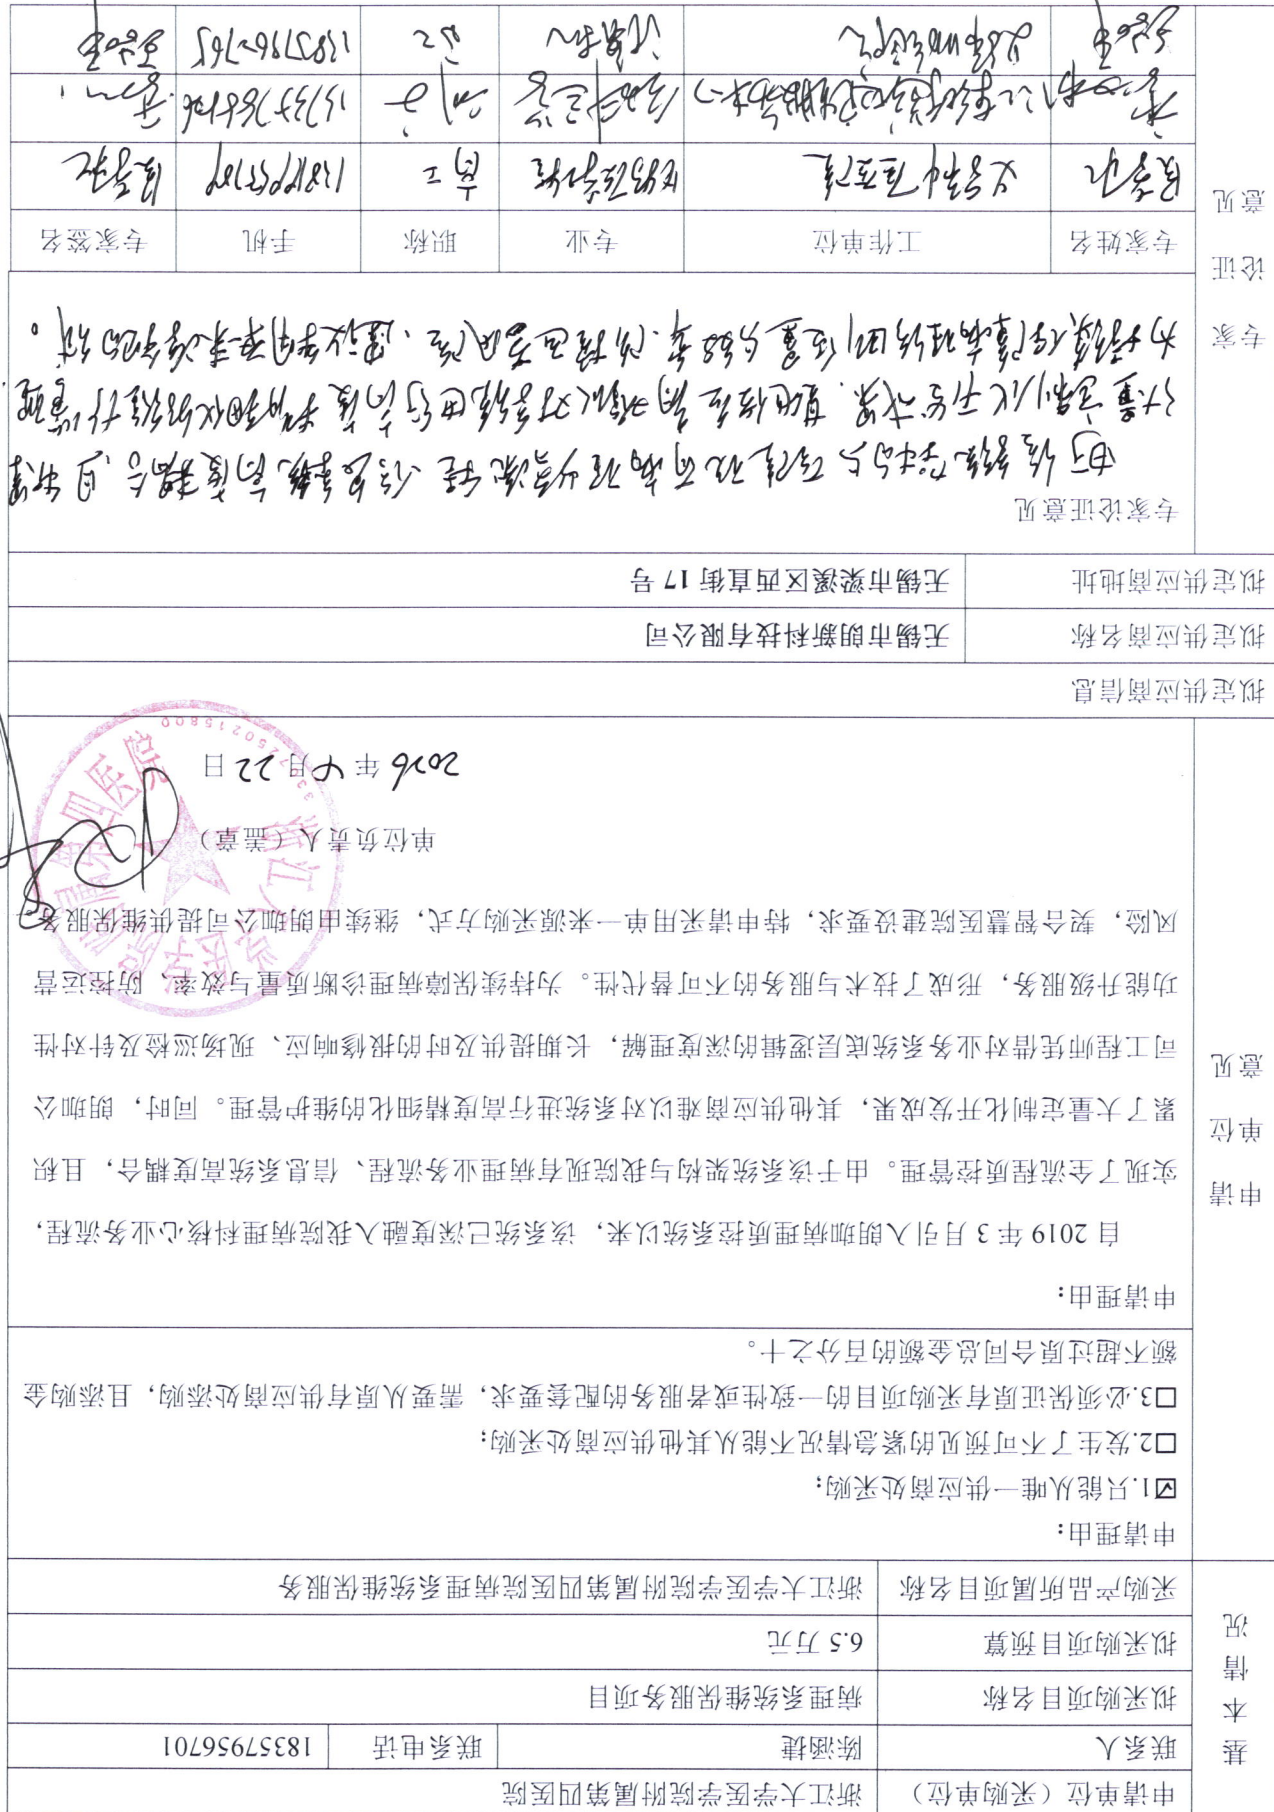 申请单位（采购单位） 浙江大学医学院附属第四医院
联系人 陈涵捷 联系电话 18357956701
拟采购项目名称 病理系统维保服务项目
拟采购项目预算 6.5 万元
采购产品所属项目名称 浙江大学医学院附属第四医院病理系统维保服务
基本情况
申请理由：
☑1.只能从唯一供应商处采购；
□2.发生了不可预见的紧急情况不能从其他供应商处采购；
□3.必须保证原有采购项目的一致性或者服务的配套要求，需要从原有供应商处添购，且添购金
额不超过原合同总金额的百分之十。
申请单位意见
申请理由：
自 2019 年 3 月引入朗珈病理质控系统以来，该系统已深度融入我院病理科核心业务流程，
实现了全流程质控管理。由于该系统架构与我院现有病理业务流程、信息系统高度耦合，且积
累了大量定制化开发成果，其他供应商难以对系统进行高度精细化的维护管理。同时，朗珈公
司工程师凭借对业务系统底层逻辑的深度理解，长期提供及时的报修响应、现场巡检及针对性
功能升级服务，形成了技术与服务的不可替代性。为持续保障病理诊断质量与效率，防控运营
风险，契合智慧医院建设要求，特申请采用单一来源采购方式，继续由朗珈公司提供维保服务。
单位负责人（盖章）
2026 年 4 月 22 日
浙江大学医学院附属第四医院
拟定供应商信息
拟定供应商名称 无锡市朗新科技有限公司
拟定供应商地址 无锡市梁溪区西直街 17 号
专家论证意见
专家论证意见
由于该系统架构与医院现有病理业务流程、信息系统高度耦合，且积累
大量定制化开发成果，其他供应商难以对系统进行高度精细化的维护管理
为持续保障病理诊断质量与效率，防控运营风险，建议采用单一来源采购方式。
专家姓名 工作单位 专业 职称 手机 专家签名
高工